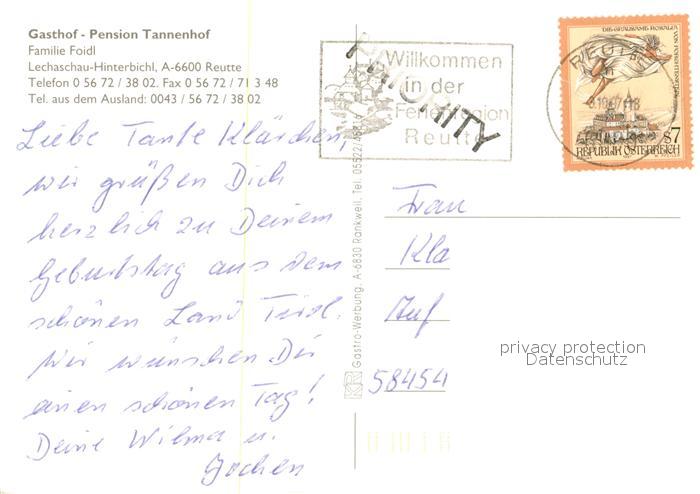 Gasthof - Pension Tannenhof
Familie Foidl
Lechaschau-Hinterbichl, A-6600 Reutte
Telefon 0 56 72 / 38 02. Fax 0 56 72 / 71 3 48
Tel. aus dem Ausland: 0043 / 56 72 / 38 02
Liebe Tante Klärchen,
wir grüßen Dich
herzlich zu Deinem
Geburtstag aus dem
schönen Land Tirol.
Wir wünschen Dir
einen schönen Tag!
Deine Wilma u.
Jochen
Willkommen
in der
Ferienregion
Reutte
PRIORITY
REUTTE
DIE GRAUSAME ROSALIA
VON FORCHTENSTEIN
S7
REPUBLIK ÖSTERREICH
Gastro-Werbung, A-6830 Rankweil, Tel. 05522/
Frau
Kla
Auf
58454
privacy protection
Datenschutz